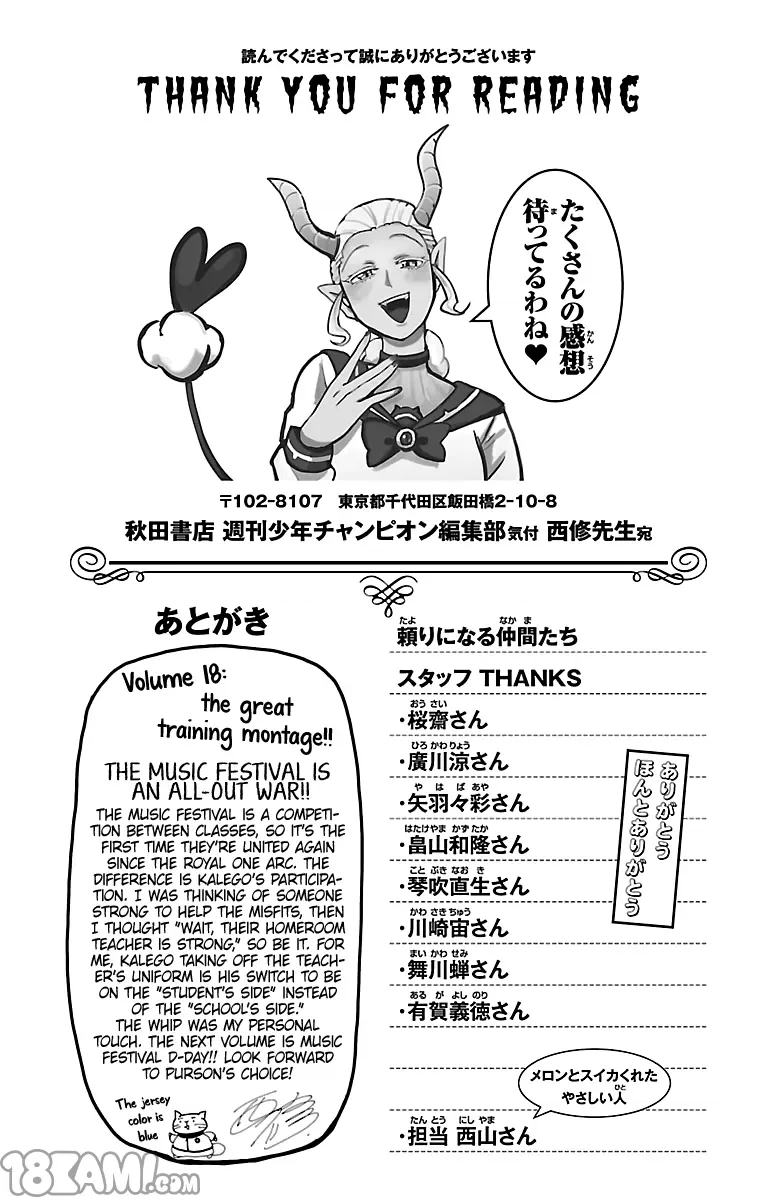 読んでくださって誠にありがとうございます
THANK YOU FOR READING
たくさんの感想
待ってるわね♥
〒102-8107 東京都千代田区飯田橋2-10-8
秋田書店 週刊少年チャンピオン編集部気付 西修先生宛
あとがき
Volume 18:
the great
training montage!!
THE MUSIC FESTIVAL IS
AN ALL-OUT WAR!!
THE MUSIC FESTIVAL IS A COMPETI-
TION BETWEEN CLASSES, SO IT'S THE
FIRST TIME THEY'RE UNITED AGAIN
SINCE THE ROYAL ONE ARC. THE
DIFFERENCE IS KALEGO'S PARTICIPA-
TION. I WAS THINKING OF SOMEONE
STRONG TO HELP THE MISFITS, THEN
I THOUGHT "WAIT, THEIR HOMEROOM
TEACHER IS STRONG," SO BE IT. FOR
ME, KALEGO TAKING OFF THE TEACH-
ER'S UNIFORM IS HIS SWITCH TO BE
ON THE "STUDENT'S SIDE" INSTEAD
OF THE "SCHOOL'S SIDE."
THE WHIP WAS MY PERSONAL
TOUCH. THE NEXT VOLUME IS MUSIC
FESTIVAL D-DAY!! LOOK FORWARD
TO PURSON'S CHOICE!
The jersey
color is
blue
頼りになる仲間たち
スタッフ THANKS
・桜齋さん
・廣川涼さん
・矢羽々彩さん
・畠山和隆さん
・琴吹直生さん
・川崎宙さん
・舞川蝉さん
・有賀義徳さん
ありがとう
ほんとありがとう
メロンとスイカくれた
やさしい人
・担当 西山さん
18KAMI.COM